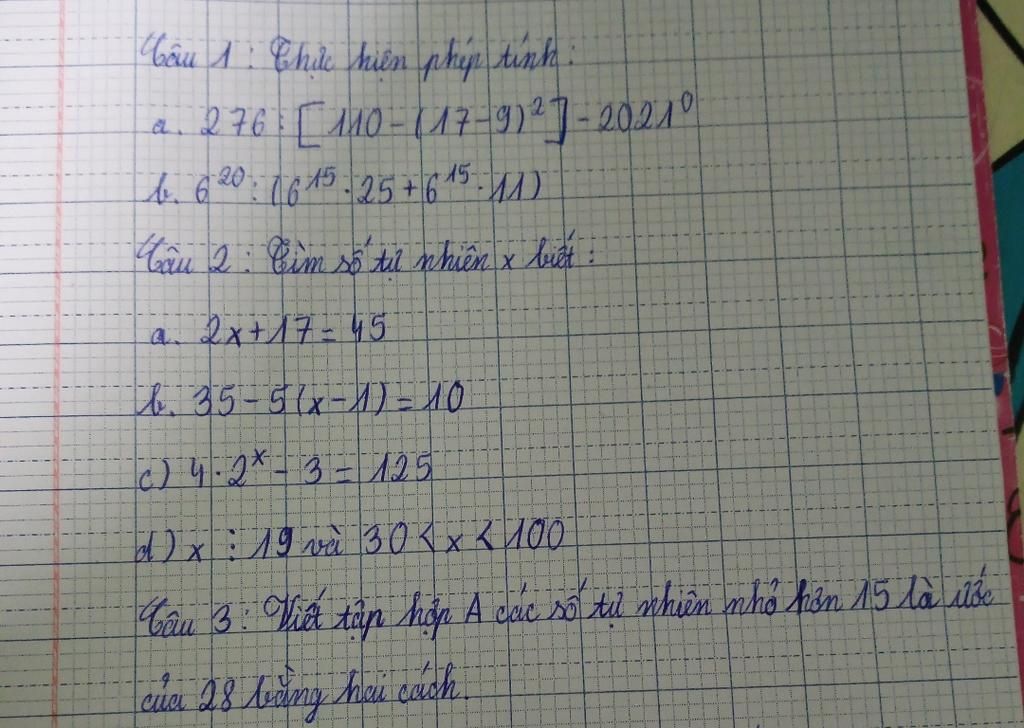 Câu 1 : Thực hiện phép tính :
a. 276 : [ 110 - (17-9)² ] - 2021⁰
b. 6²⁰ : (6¹⁵ · 25 + 6¹⁵ · 11)
Câu 2 : Tìm số tự nhiên x biết :
a. 2x + 17 = 45
b. 35 - 5(x - 1) = 10
c) 4 · 2ˣ - 3 = 125
d) x ⋮ 19 và 30 < x < 100
Câu 3 : Viết tập hợp A các số tự nhiên nhỏ hơn 15 là ước
của 28 bằng hai cách.